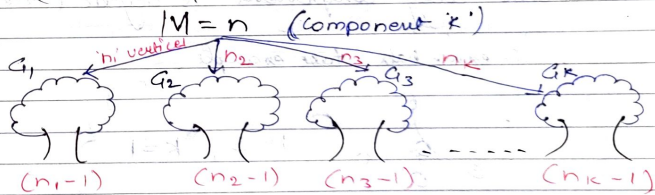 |V| = n (component 'k')
'n₁ vertices n₂ n₃ nₖ
G₁ G₂ G₃ Gₖ
(n₁-1) (n₂-1) (n₃-1) ------ (nₖ-1)